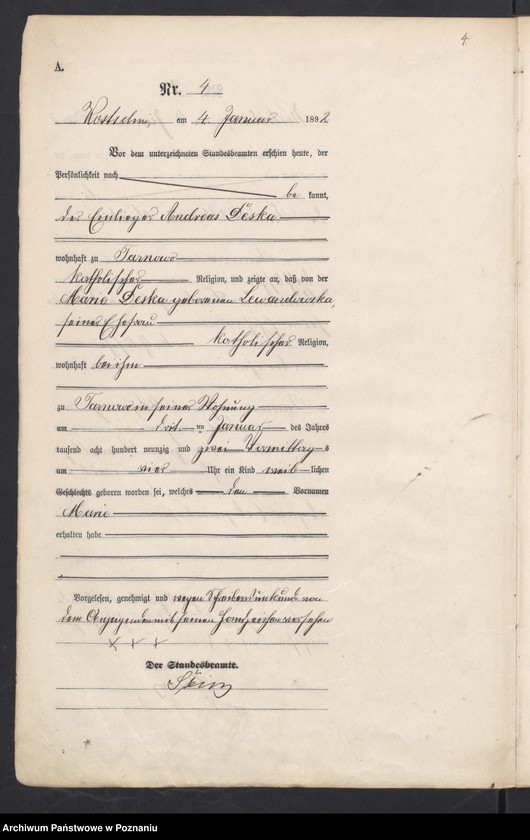 4.
A.
Nr. 4
Kostschin, am 4 Januar 1892
Vor dem unterzeichneten Standesbeamten erschien heute, der
Persönlichkeit nach
be kannt,
der Einlieger Andreas Deska
wohnhaft zu Tarnowo
katholischer Religion, und zeigte an, daß von der
Marie Deska geborenen Lewandowska,
seiner Ehefrau
katholischer Religion,
wohnhaft bei ihm
zu Tarnowo in seiner Wohnung
am drit. ten Januar des Jahres
tausend acht hundert neunzig und zwei Vormittag s
um vier Uhr ein Kind weib lichen
Geschlechts geboren worden sei, welches den Vornamen
Marie
erhalten habe
Vorgelesen, genehmigt und wegen Schreibensunkunde von
dem Anzeigenden mit seinem Handzeichen versehen
x x x
Der Standesbeamte.
Archiwum Państwowe w Poznaniu